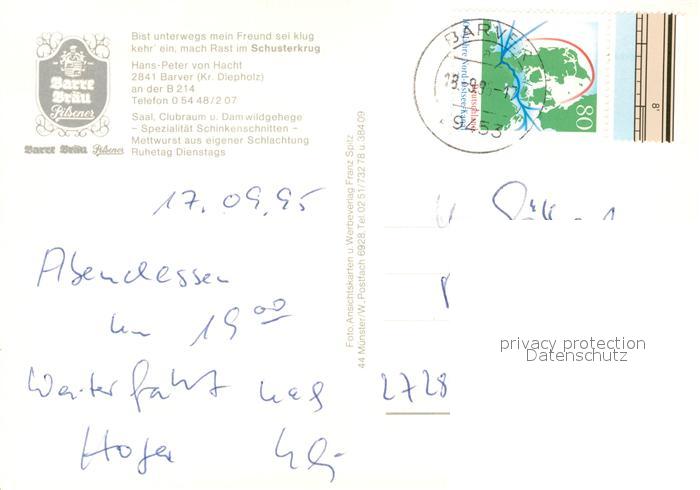 Bist unterwegs mein Freund sei klug
kehr' ein, mach Rast im Schusterkrug
Hans-Peter von Hacht
2841 Barver (Kr. Diepholz)
an der B 214
Telefon 0 54 48 / 2 07
Saal, Clubraum u. Damwildgehege
– Spezialität Schinkenschnitten –
Mettwurst aus eigener Schlachtung
Ruhetag Dienstags
Barre
Bräu
Pilsener
Barre Bräu Pilsener
BARVER
80
8'
Foto, Ansichtskarten u. Werbeverlag Franz Spitz
44 Münster/W. Postfach 6928. Tel. 02 51/732 78 u. 384 09
17.09.95
Abendessen
um 19 00
Weiterfahrt nach
Hoya
2728
privacy protection
Datenschutz